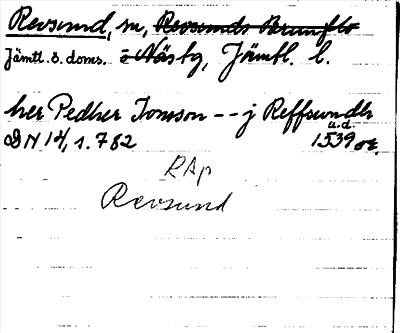 Revsund, sn, Revsunds Brunflo
Jämtl. ö. doms. o Näs tg, Jämtl. l.
her Pedher Jonsson -- j Reffswndh
DN 14, 1. 782 1539 u.d. or.
RAp
Revsund